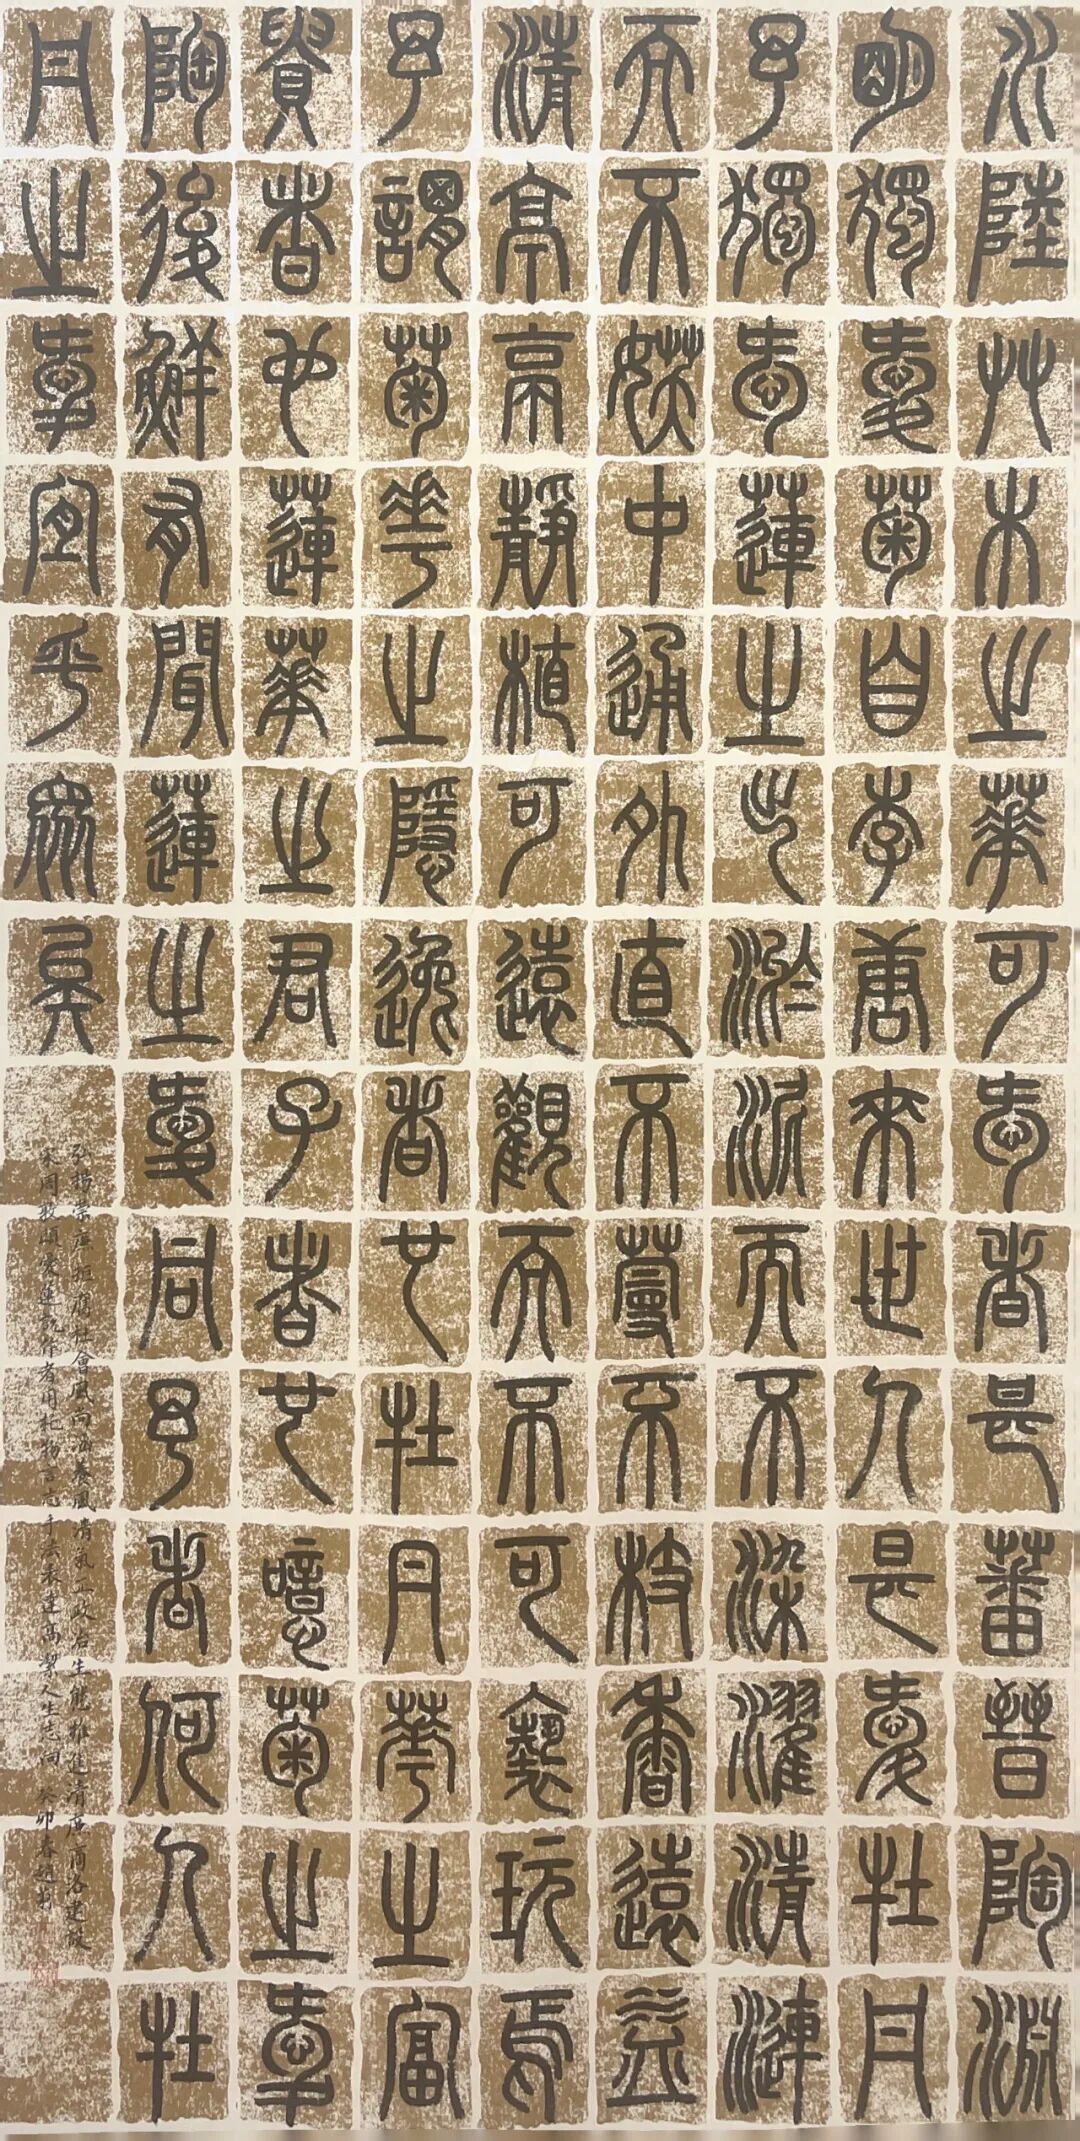 水陸艸木之華可愛者甚蕃晉陶淵
明獨愛菊自李唐來世人甚愛牡丹
予獨愛蓮之出淤泥而不染濯清漣
而不妖中通外直不蔓不枝香遠益
清亭亭靜植可遠觀而不可褻玩焉
予謂菊華之隱逸者也牡丹華之富
貴者也蓮華之君子者也噫菊之愛
陶後鮮有聞蓮之愛同予者何人牡
丹之愛宜乎眾矣
弘揚崇廉拒腐社會風尚涵養風清氣正政治生態推進清廉商洛建設
宋周敦頤愛蓮說作者用托物言志手法表達高潔人生志向 癸卯春趙